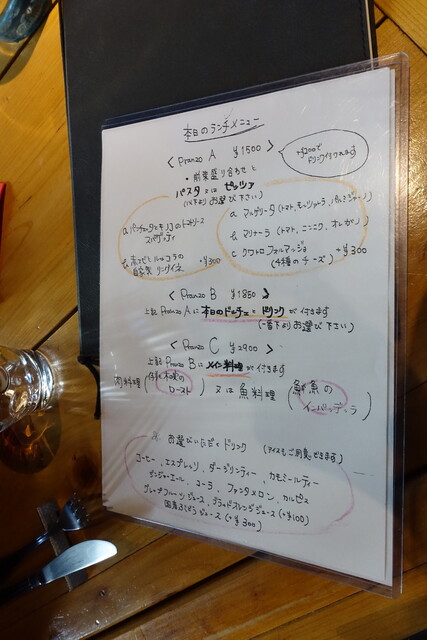 本日のランチメニュー
< Pranzo A ¥1500 >
+¥200で
ドリンク付けれます
・前菜盛り合わせと
パスタ 又は ピッツァ
(以下よりお選び下さい)
a パンチェッタとキノコのトマトソース
スパゲッティ
b ホタテとルッコラの
自家製リングイネ +¥300
a マルゲリータ (トマト、モッツァレラ、パルミジャーノ)
b マリナーラ (トマト、ニンニク、オレガノ)
c クワトロフォルマッジョ +¥300
(4種のチーズ)
< Pranzo B ¥1850 >
上記 Pranzo A に 本日のドルチェ と ドリンク が付きます
(一番下よりお選び下さい)
< Pranzo C ¥2900 >
上記 Pranzo B に メイン料理 が付きます
肉料理 ( ロースト ) 又は 魚料理 ( 鮮魚の
インパデッラ )
※ お選びいただくドリンク (アイスもご用意できます)
コーヒー、エスプレッソ、ダージリンティー、カモミールティー
ジンジャーエール、コーラ、ファンタメロン、カルピス
グレープフルーツジュース、ブラッドオレンジジュース (+¥100)
国産ぶどうジュース (+¥300)